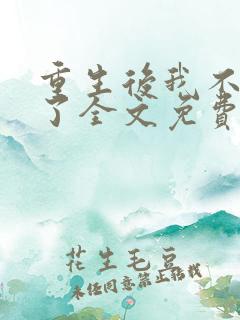 重生後我不
了全文免費
花生毛豆
未经同意禁止转载